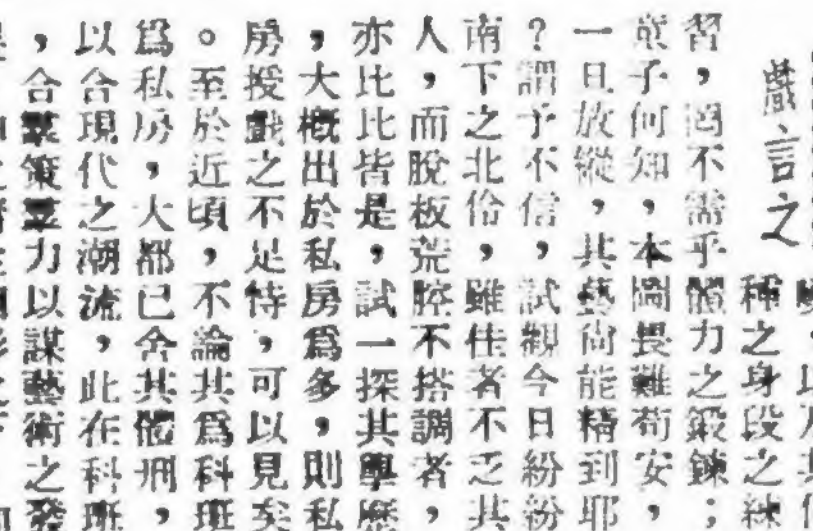 嚴言之
種之身段之練
習，罔不需乎體力之鍛鍊；
童子何知，本圖畏難苟安，
一旦放縱，其藝尙能精到耶
？謂予不信，試觀今日紛紛
南下之北伶，雖佳者不乏其
人，而脫板荒腔不搭調者，
亦比比皆是，試一探其學歷
，大概出於私房爲多，則私
房授戲之不足恃，可以見矣
。至於近頃，不論其爲科班
爲私房，大都已舍其體刑，
以合現代之潮流，此在科班
，合羣策羣力以謀藝術之發